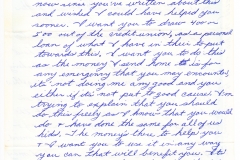 now since you've written about this
and wished I could have helped you
sooner. I want you to draw 400 or
500 out of the credit union, as a personal
loan of what I have in their Dept
towards this, I want you to do this
as the money I send home is for
any emergency that you may encounter,
it's not doing me any good and you
either is it not put to good causes. I'm
trying to explain that you should
do this freely as I know that you would
do & have done the same for all us
kids. The money's there to help you
& I want you to use it in any way
you can that will benefit you. It's